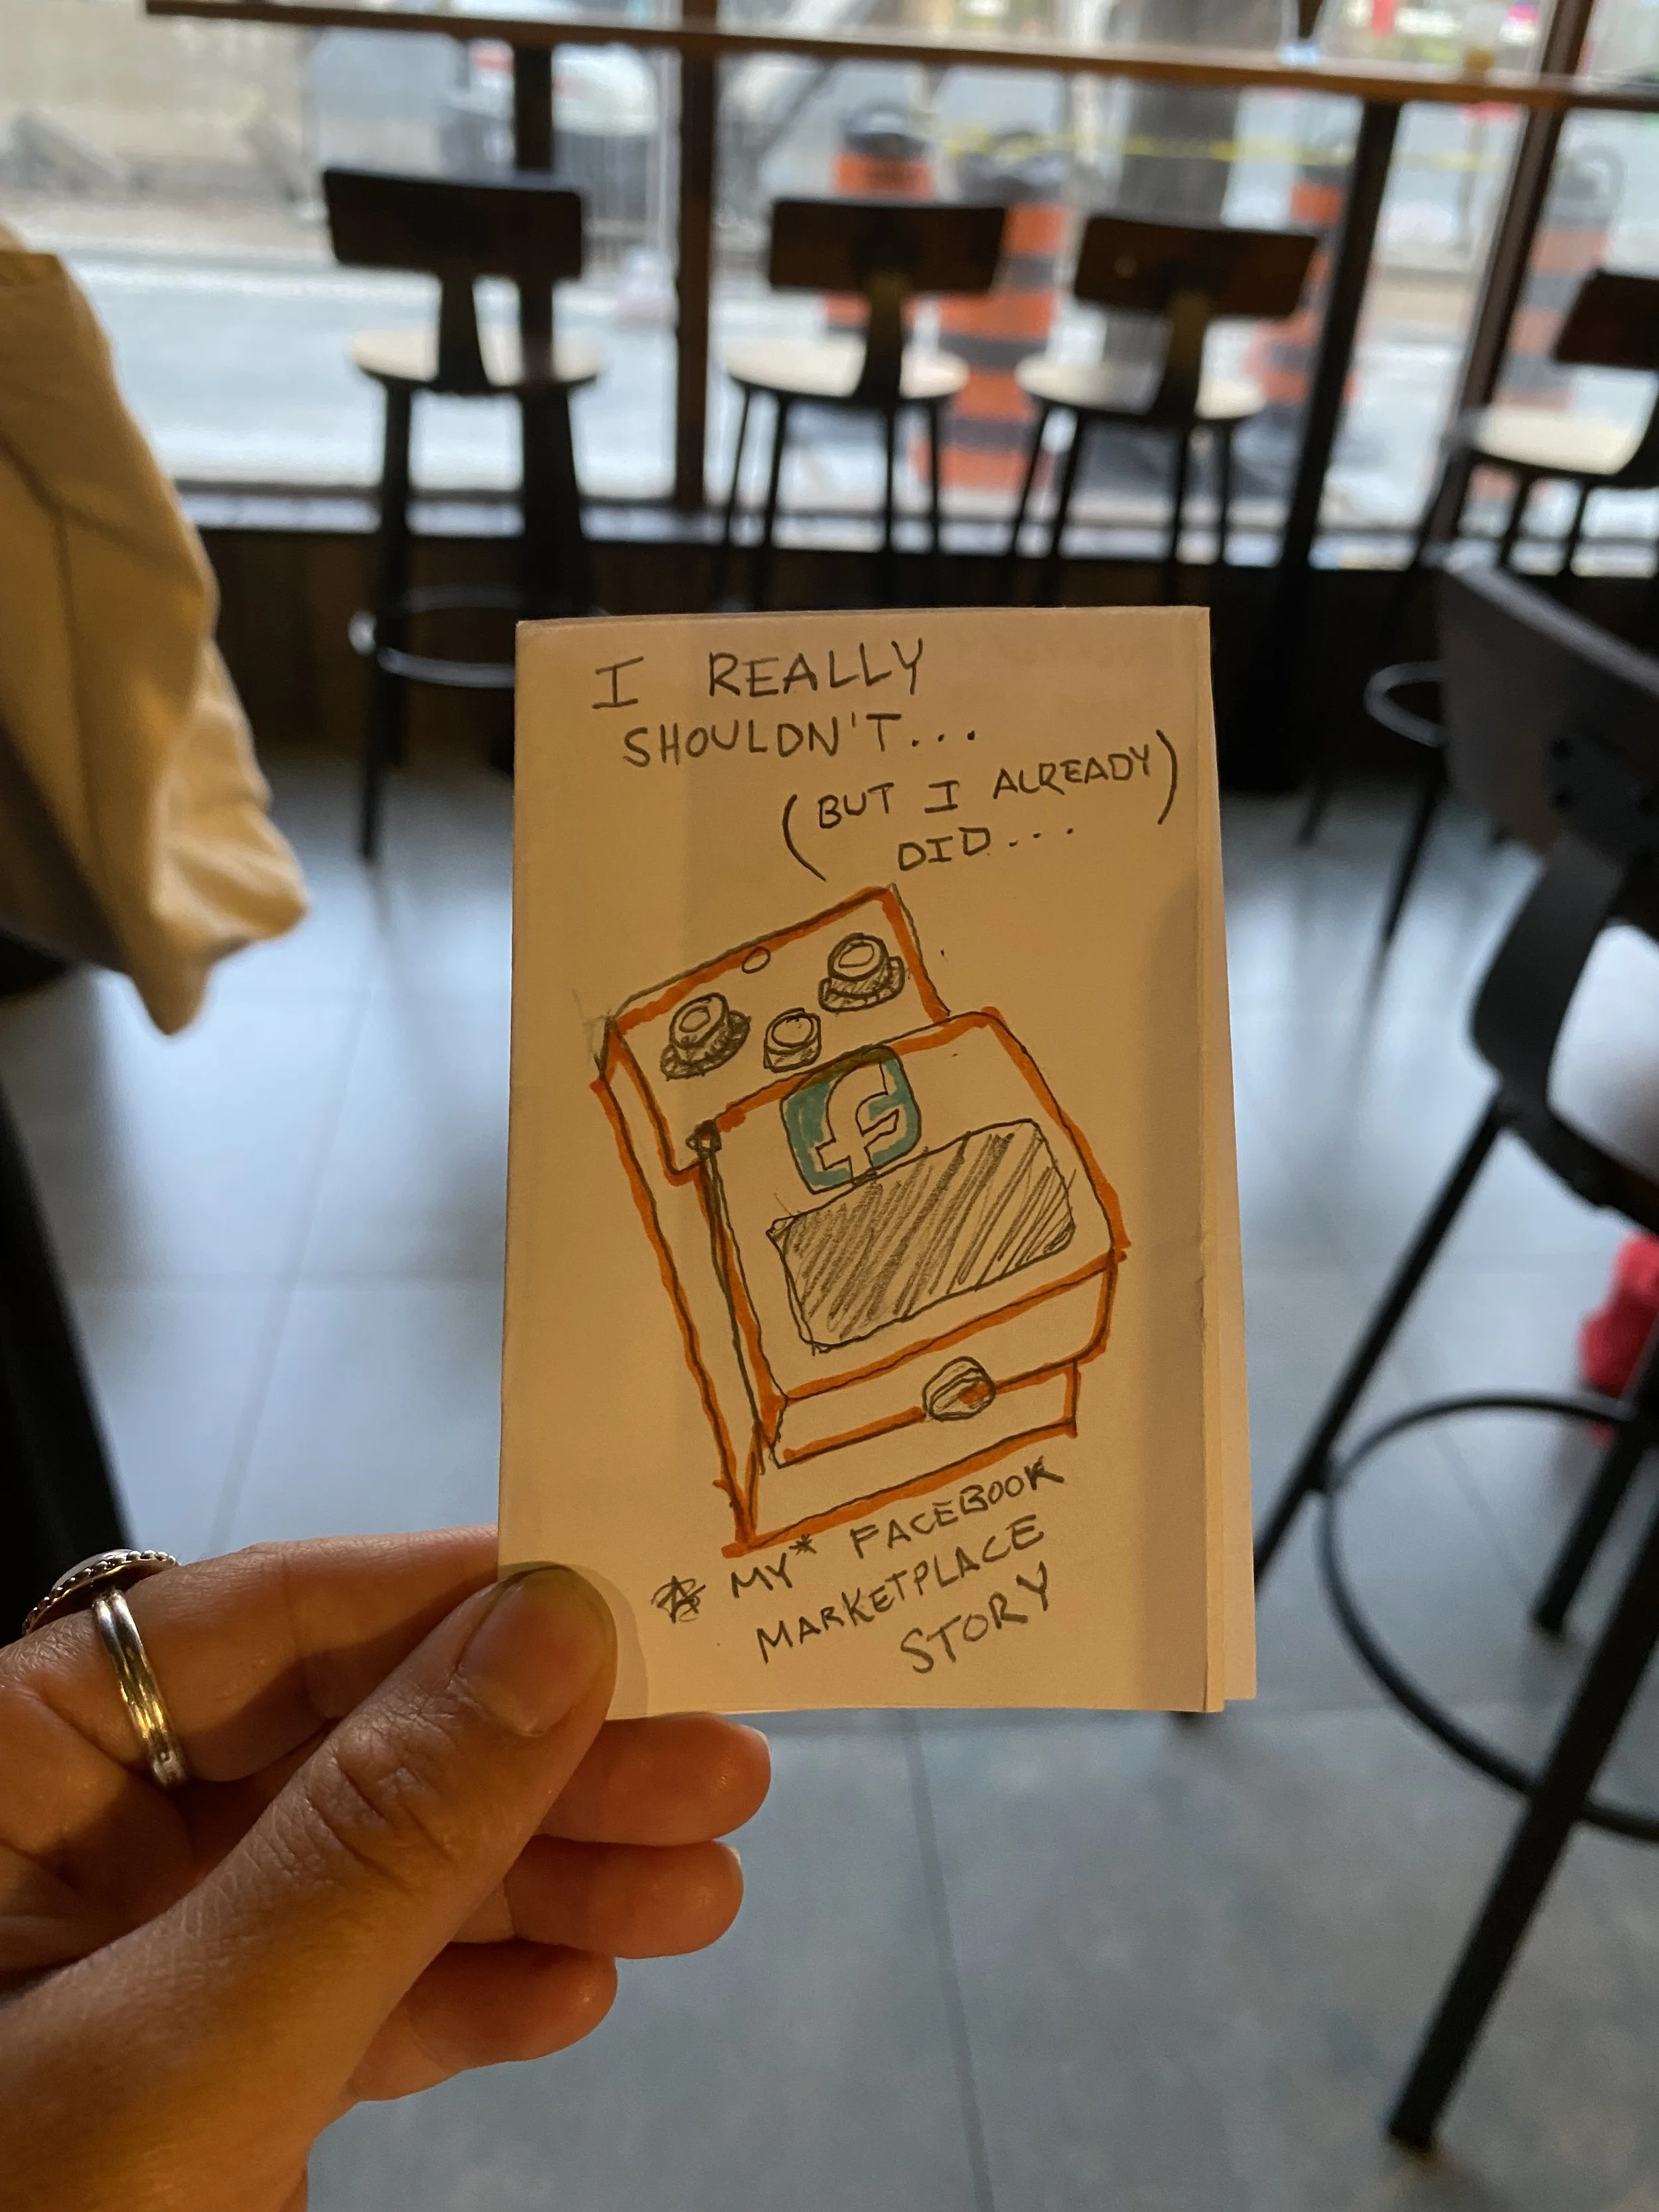 I REALLY
SHOULDN'T...
(BUT I ALREADY)
DID...
f
MY* FACEBOOK
MARKETPLACE
STORY